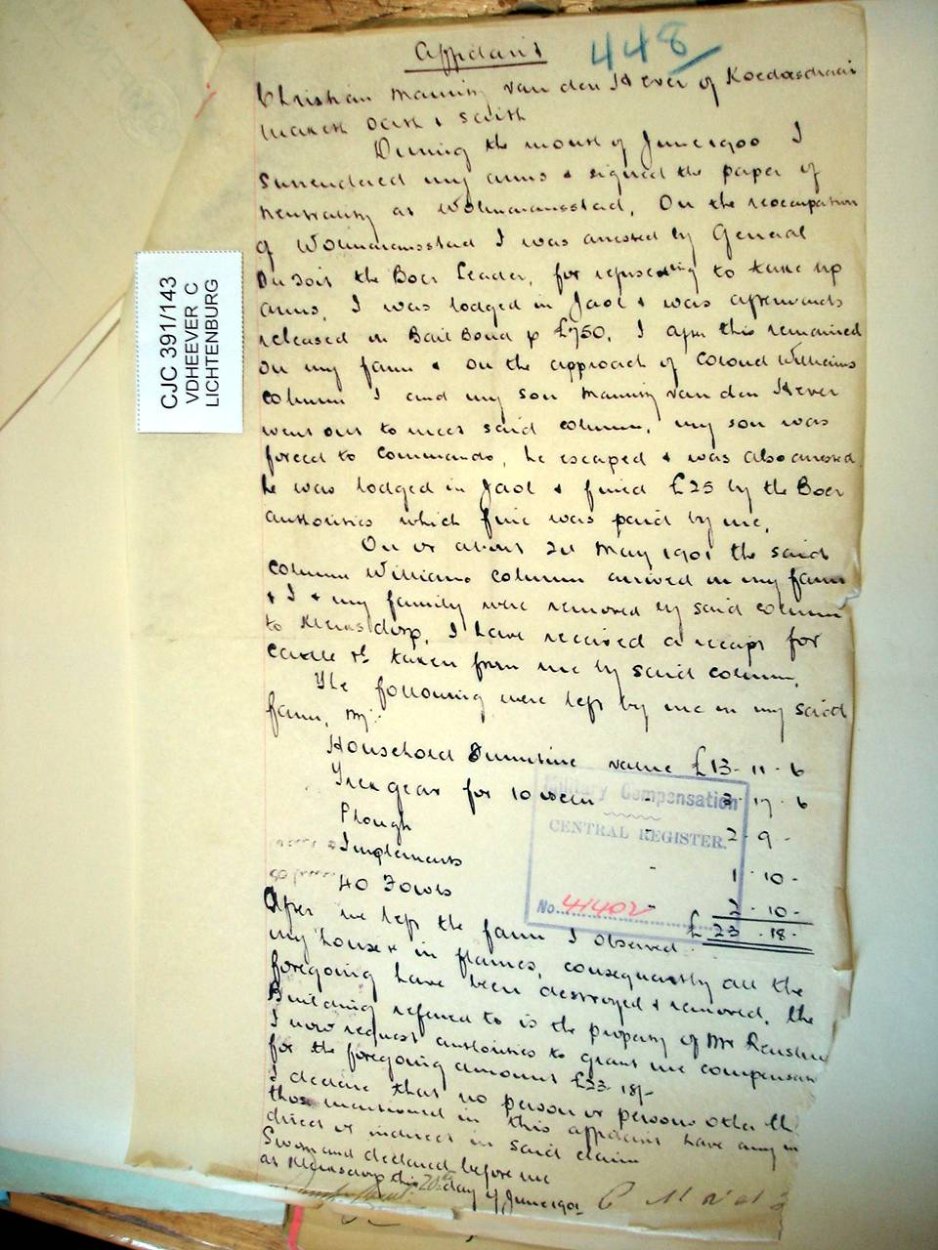 Affidavit
448
Christian Manning van den Hever of Koedoesdraai
maketh oath & saith
During the month of June 1900 I
surrendered my arms & signed the paper of
neutrality at Wolmaransstad. On the reoccupation
of Wolmaransstad I was arrested by General
Du Toit the Boer Leader, for refusing to take up
arms. I was lodged in Jaol & was afterwards
released on Bail Bond of £750. I after this remained
on my farm & on the approach of Colonel Williams
column I and my son Manning van den Hever
went out to meet said column. my son was
forced to Commando, he escaped & was also arrested
he was lodged in Jaol & fined £25 by the Boer
authorities which fine was paid by me.
On or about 2d May 1901 the said
column Williams column arrived on my farm
& I & my family were removed by said column
to Klerksdorp. I have received a receipt for
cattle &c taken from me by said column.
The following were left by me on my said
farm,
Household Furniture value £13-11-6
Trek gear for 10 oxen - 3 17 6
Plough - 2-9-
Implements - 1-10-
40 Fowls - 2-10-
£ 23-18-
Military Compensation
CENTRAL REGISTER.
No. 41402
After we left the farm I observed
my house in flames, consequently all the
foregoing have been destroyed & removed. the
Building referred to is the property of Mr
I now request authorities to grant me compensation
for the foregoing amount £23-18/-
I declare that no person or persons other th
those mentioned in this affidavit have any in
direct or indirect in said claim
Sworn and declared before me
at Klerksdorp this 20th day of June 1901
CJC 391/143
VDHEEVER C
LICHTENBURG